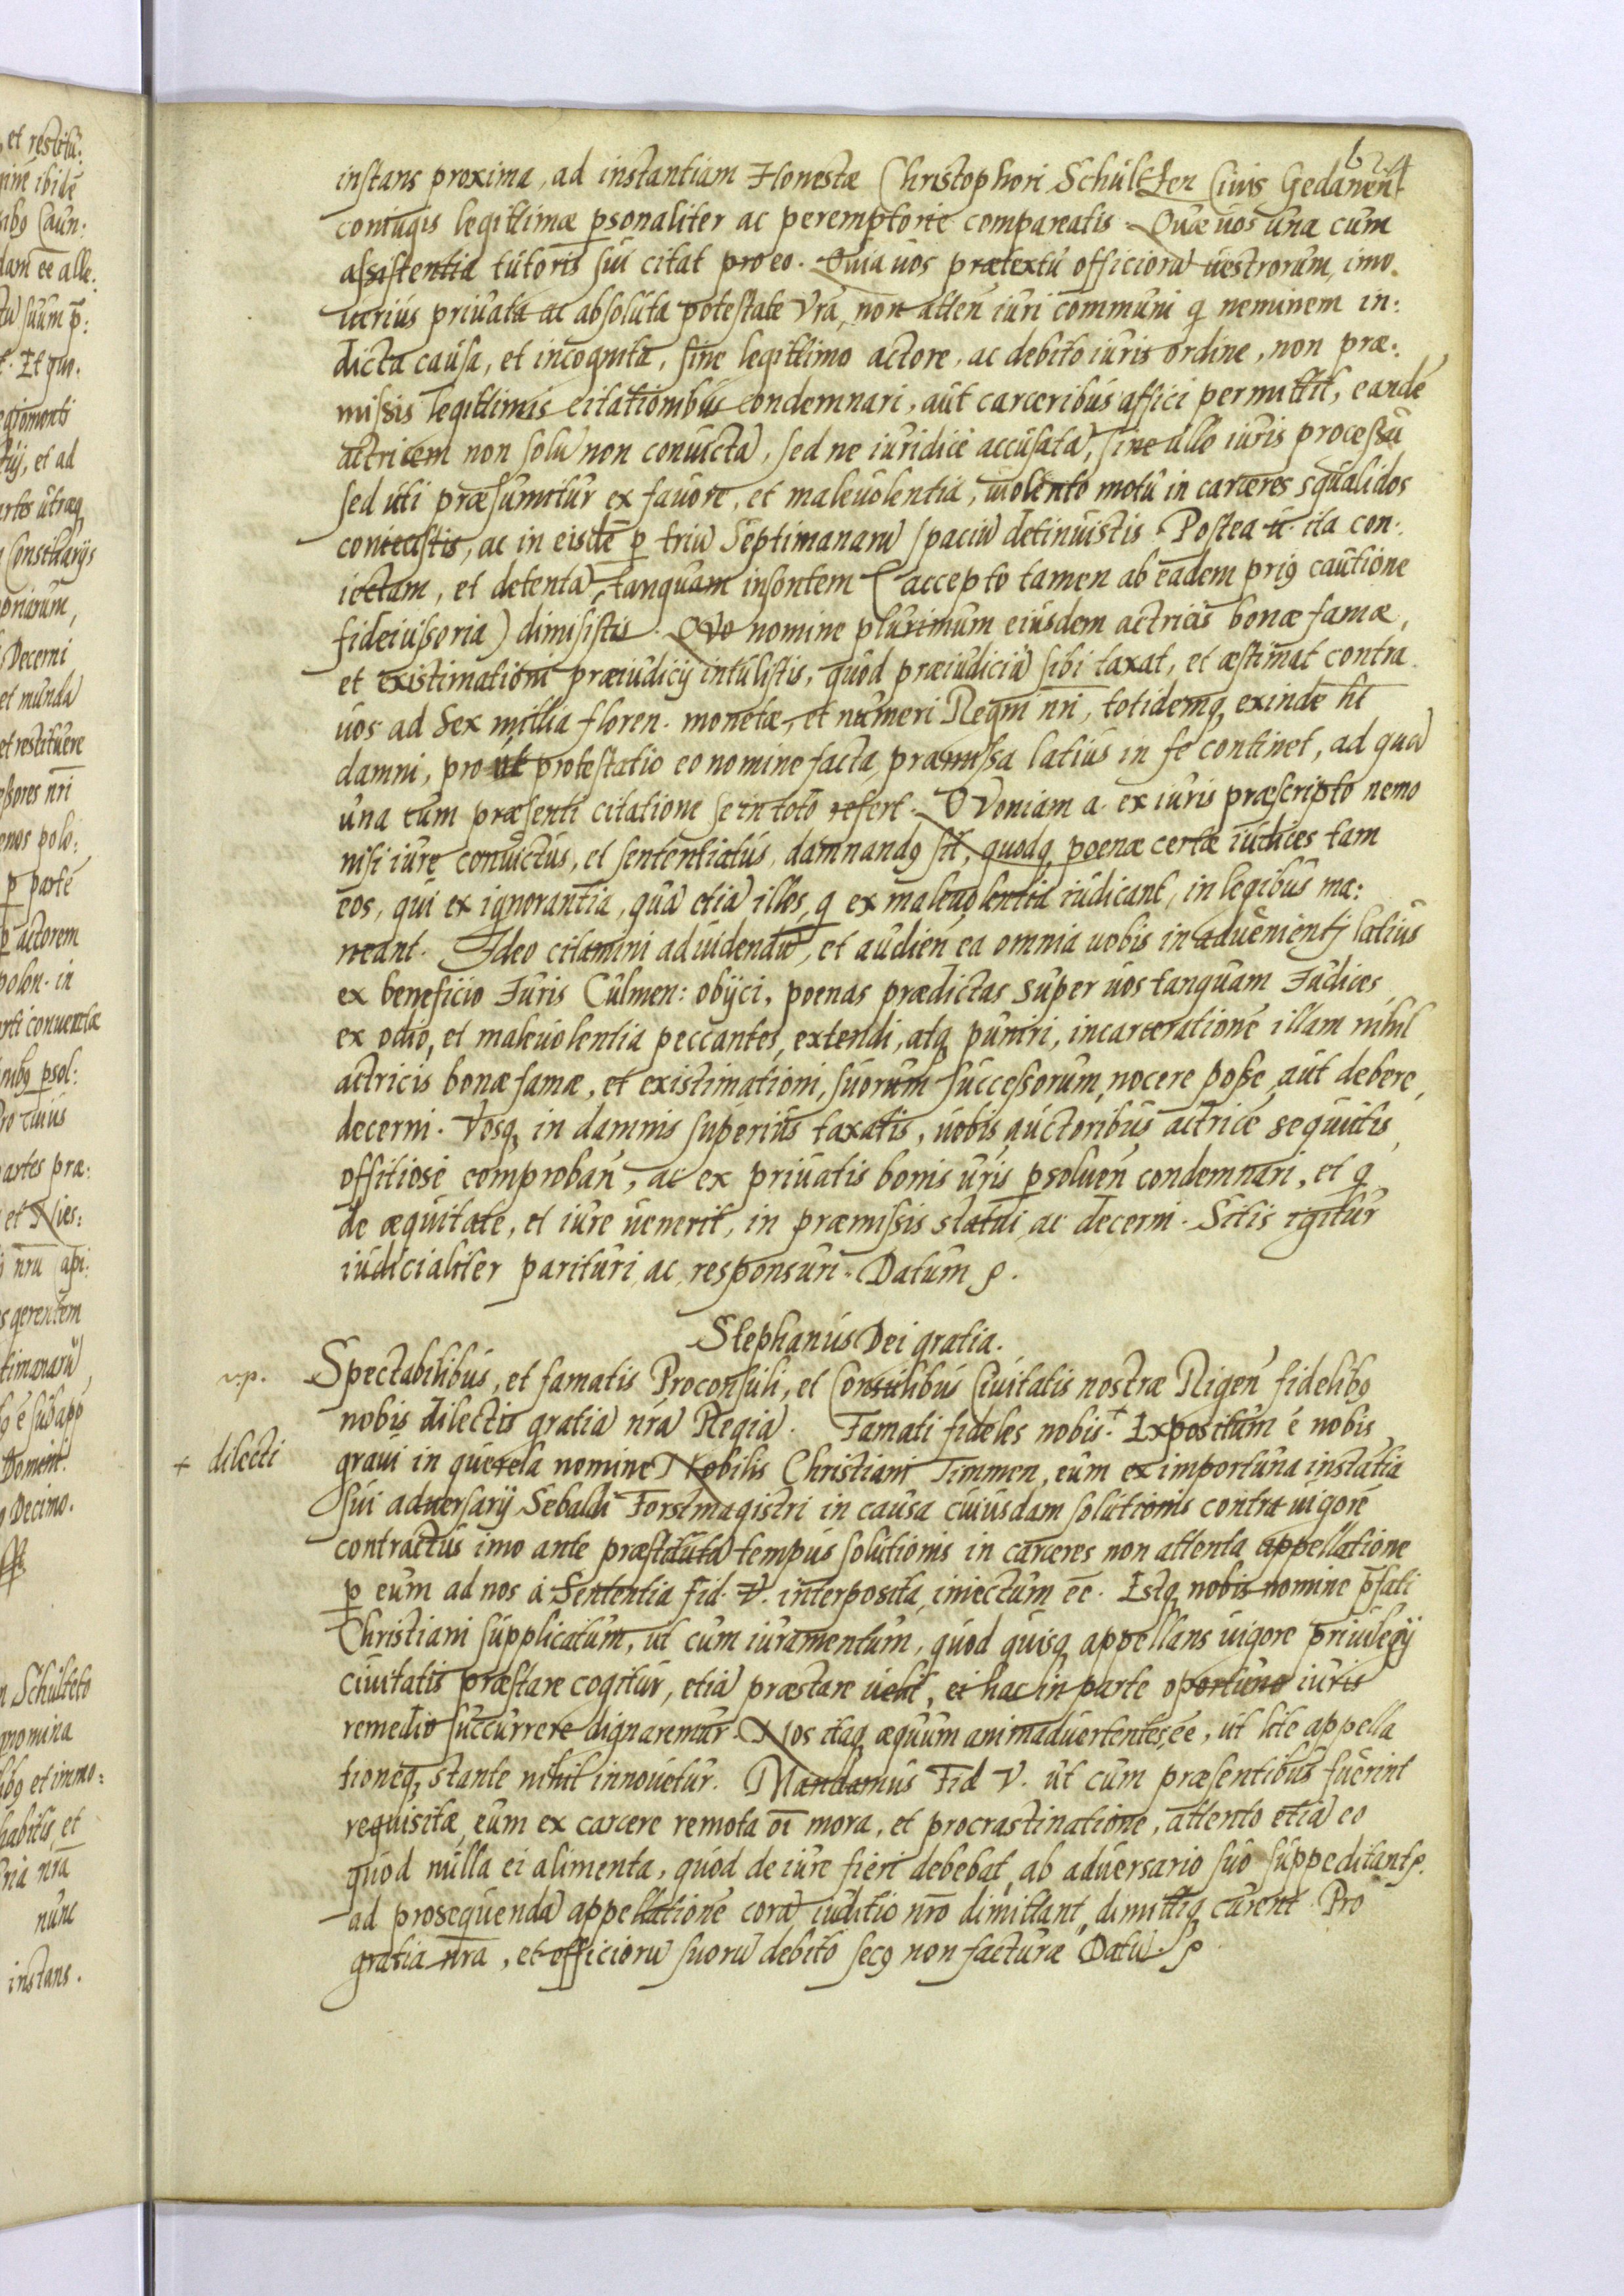 624
instans proxima, ad instantiam Honestæ Christophori Schultzen Civis Gedanen
coniugis legittimæ psonaliter ac peremptorie compareatis. Quæ vos una cum
assistentia tutoris sui citat pro eo. Quia vos prætextu officioru vestrorum, imo
verius privata ac absoluta potestate vra, non atten iuri communi q neminem in:
dicta causa, et incognita, sine legittimo actore, ac debito iuris ordine, non præ:
missis legittimis citationibus condemnari, aut carceribus affici permittit, eandē
actricem non solu non convicta, sed ne iuridice accusata, sine ullo iuris processu
sed uti præsumitur ex favore, et malevolentia, violento motu in carceres squalidos
coniecistis, ac in eisdē p triu Septimanaru spaciu detinuistis. Postea ū ita con:
iectam, et detenta, tanquam insontem (accepto tamen ab eadem prig cautione
fideiussoria) dimisistis. Quo nomine plurimum eiusdem actricis bonæ famæ,
et existimationi præiudicij intulistis, quod præiudiciu sibi taxat, et æstimat contra
vos ad Sex millia floren. monetæ, et numeri Regni nri, totidemq exinde lit
damni, pro ut protestatio eo nomine facta, præmissa latius in se continet, ad qua
una cum præsenti citatione se in toto refert. Quoniam a. ex iuris præscripto nemo
nisi iure convictus, et sententiatus, damnandg sit, quodq poenæ certæ iudices tam
eos, qui ex ignorantia, qua etia illos, q ex malevolentia iudicant, in legibus ma:
neant. Ideo citamini ad videndu, et audien ea omnia vobis in advenientj latius
ex beneficio Juris Culmen: obijci, poenas prædictas super vos tanquam Judices
ex odio, et malevolentia peccantes, extendi, atq puniri, incarcerationē illam nihil
actricis bonæ famæ, et existimationi, suorum successorum, nocere posse, aut debere,
decerni. Vosq in damnis superius taxatis, vobis auctoribus actricē sequutis
offitiose comproban, ac ex privatis bonis vris psolven condemnari, et q
de æquitate, et iure venerit, in præmissis statui, ac decerni. Sitis igitur
iudicialiter parituri, ac responsuri. Datum ꝭ.
Stephanus Dei gratia.
v.p. Spectabilibus, et famatis Proconsuli, et Consulibus Civitatis nostræ Rigen fidelibg
nobis dilectis gratia nra Regia. Famati fideles nobis + Expositum ē nobis
+ dilecti
gravi in querela nomine Nobilis Christiani Timmen, eum ex importuna instatia
sui adversarij Sebaldi Forstmagistri in causa cuiusdam solutionis contra vigorē
contractus imo ante præstituta tempus solutionis in carceres non attenta appellatione
p eum ad nos à Sententia Fid. V. interposita, iniectum ēē. Estq nobis nomine p̄fati
Christiani supplicatum, ut cum iuramentum, quod quisq appellans vigore privilegij
civitatis præstare cogitur, etia præstare velit, ei hac in parte oportuno iuris
remedio succurrere dignaremur. Nos itaq æquum animadvertentes ēē, ut lite appella
tioneq stante nihil innovetur. Mandamus Fid V. ut cum præsentibus fuerint
requisitæ, eum ex carcere remota oī mora, et procrastinatione, attento etia eo
quod nulla ei alimenta, quod de iure fieri debebat, ab adversario suo suppeditantꝭ.
ad prosequenda appellationē cora iuditio nro dimittant, dimittiq curent. Pro
gratia nra, et officioru suoru debito secg non facturæ Datu. ꝭ